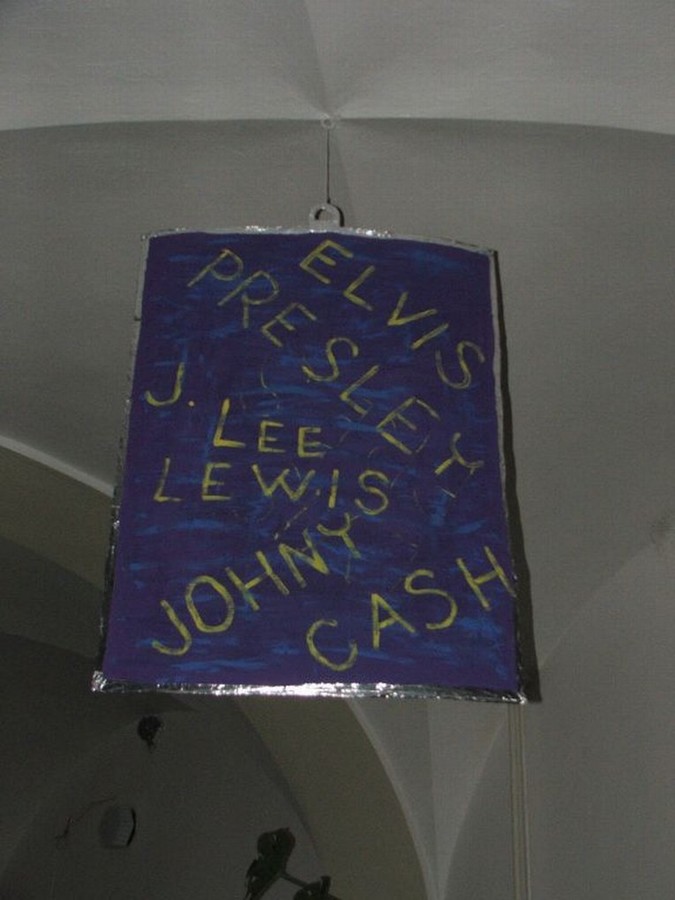 ELVIS
PRESLEY
J. LEE
LEWIS
JOHNY
CASH